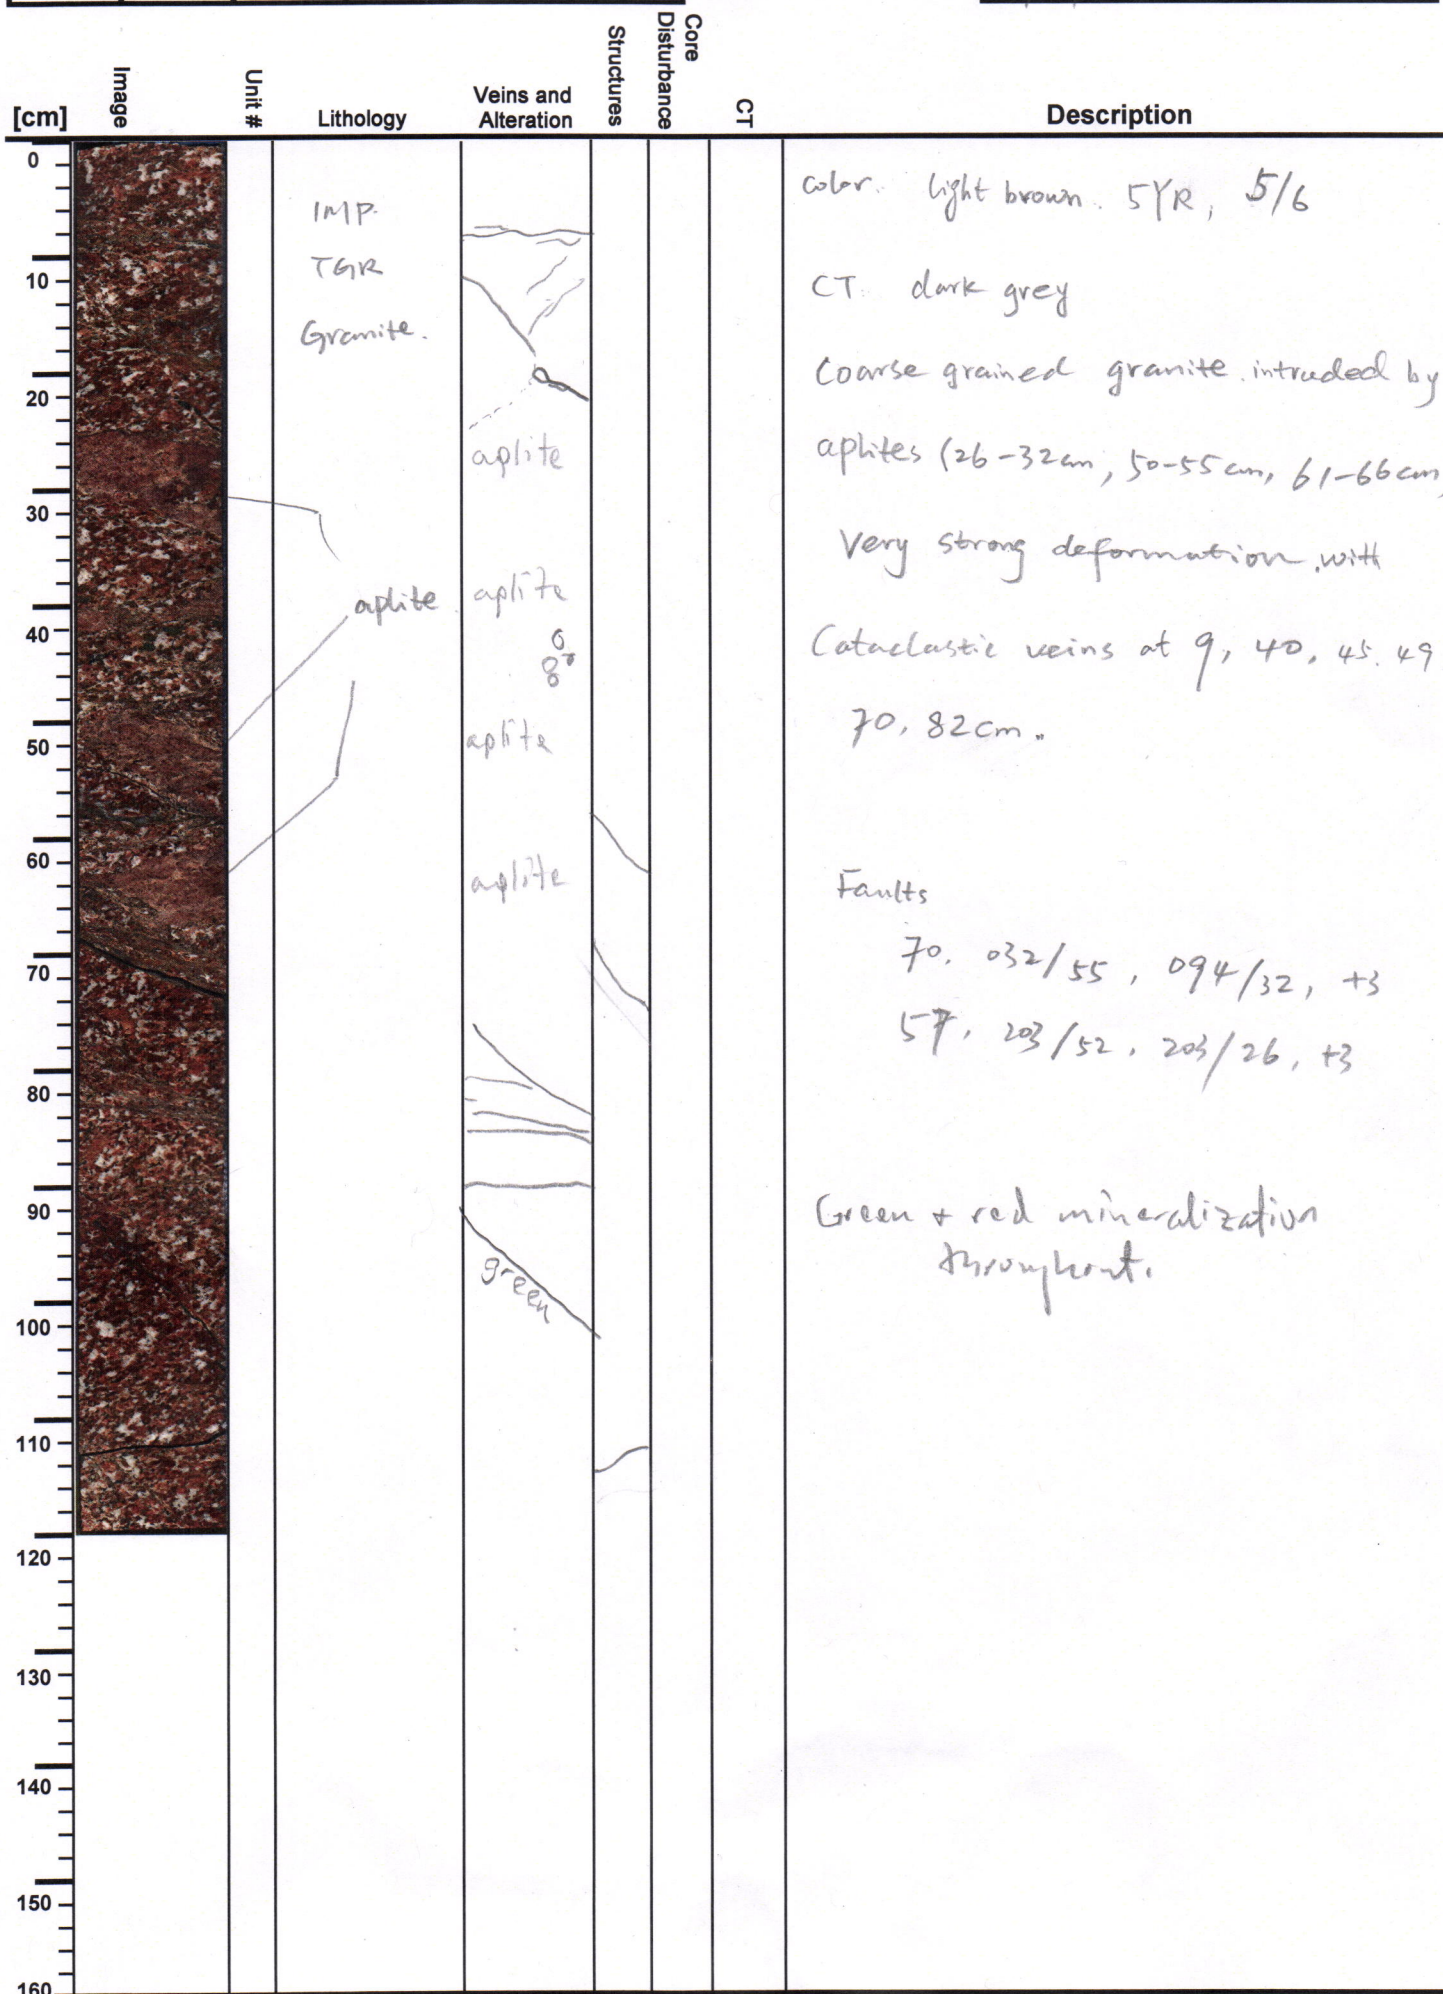 [cm]
Image
Unit #
Lithology
Veins and
Alteration
Structures
Core
Disturbance
CT
Description
0
10
20
30
40
50
60
70
80
90
100
110
120
130
140
150
160
IMP.
TGR
Granite.
aplite
aplite
aplite
aplite
aplite
green
color. light brown. 5YR, 5/6
CT. dark grey
Coarse grained granite. intruded by
aplites (26-32cm, 50-55cm, 61-66cm
Very strong deformation, with
Cataclastic veins at 9, 40, 45. 49
70, 82cm.
Faults
70, 032/55, 094/32, +3
57, 203/52, 203/26, +3
Green + red mineralization
throughout.